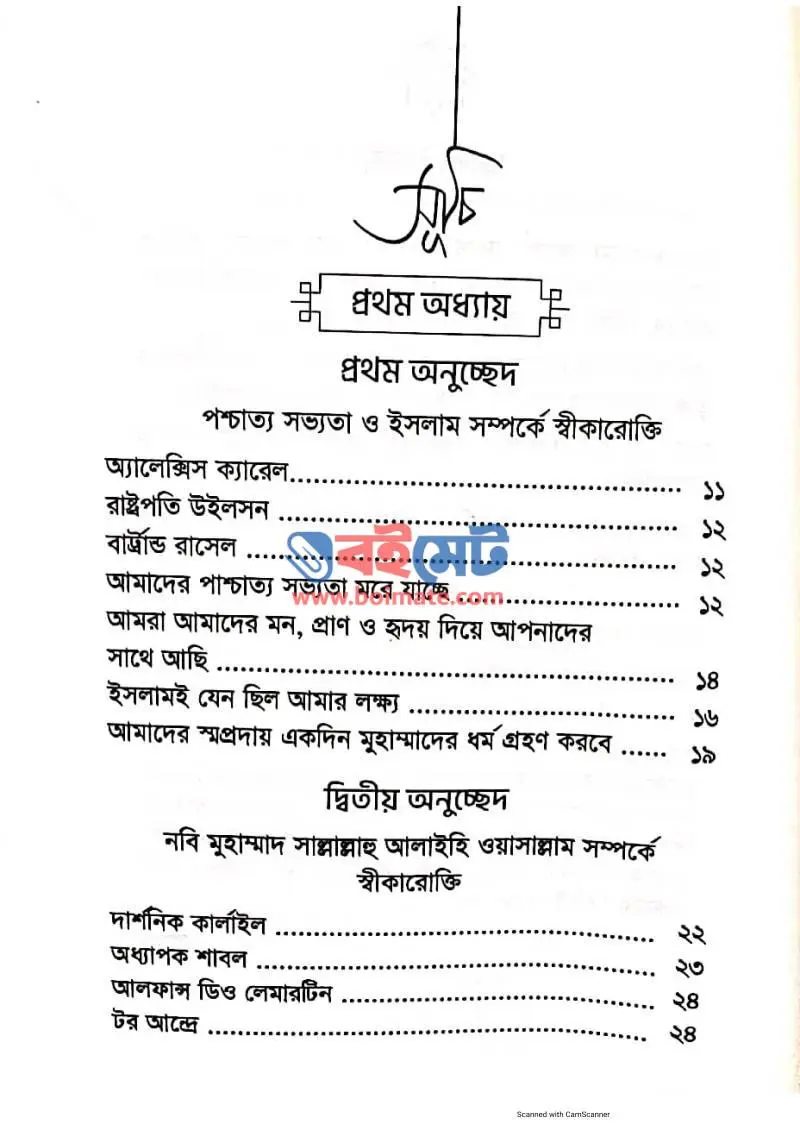 সূচি
প্রথম অধ্যায়
প্রথম অনুচ্ছেদ
পশ্চাত্য সভ্যতা ও ইসলাম সম্পর্কে স্বীকারোক্তি
অ্যালেক্সিস ক্যারেল.................................................... ১১
রাষ্ট্রপতি উইলসন .................................................... ১২
বার্ট্রান্ড রাসেল .................................................... ১২
বইমেট
আমাদের পাশ্চাত্য সভ্যতা মরে যাচ্ছে .............................. ১২
www.boimate.com
আমরা আমাদের মন, প্রাণ ও হৃদয় দিয়ে আপনাদের
সাথে আছি .......................................................... ১৪
ইসলামই যেন ছিল আমার লক্ষ্য .................................... ১৬
আমাদের স্মপ্রদায় একদিন মুহাম্মাদের ধর্ম গ্রহণ করবে ...... ১৯
দ্বিতীয় অনুচ্ছেদ
নবি মুহাম্মাদ সাল্লাল্লাহু আলাইহি ওয়াসাল্লাম সম্পর্কে
স্বীকারোক্তি
দার্শনিক কার্লাইল .................................................. ২২
অধ্যাপক শাবল .................................................... ২৩
আলফান্স ডিও লেমারটিন ........................................ ২৪
টর আন্দ্রে .......................................................... ২৪
Scanned with CamScanner